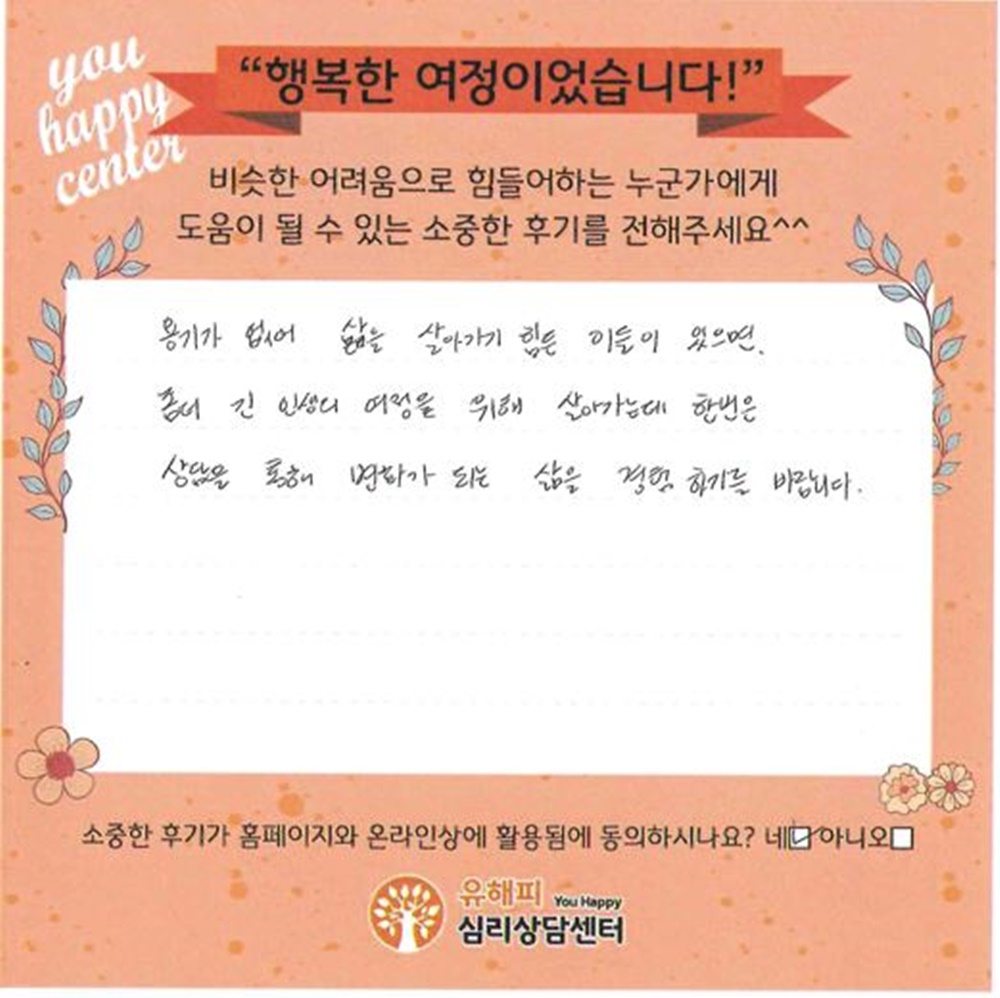 you
happy
center
“행복한 여정이었습니다!”
비슷한 어려움으로 힘들어하는 누군가에게
도움이 될 수 있는 소중한 후기를 전해주세요^^
용기가 없어 삶을 살아가기 힘든 이들이 있으면.
좀더 긴 인생의 여정을 위해 살아가는데 한번은
상담을 통해 변화가 되는 삶을 경험 하기를 바랍니다.
소중한 후기가 홈페이지와 온라인상에 활용됨에 동의하시나요? 네☑ 아니오□
유해피 You Happy
심리상담센터